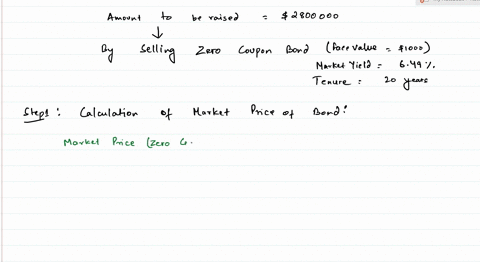 Amount to be raised = $2800000
By Selling Zero Coupon Bond (Face value = $1000)
Market Yield = 6.49%.
Tenure = 20 years
Step1: Calculation of Market Price of Bond:
Market Price (Zero Co